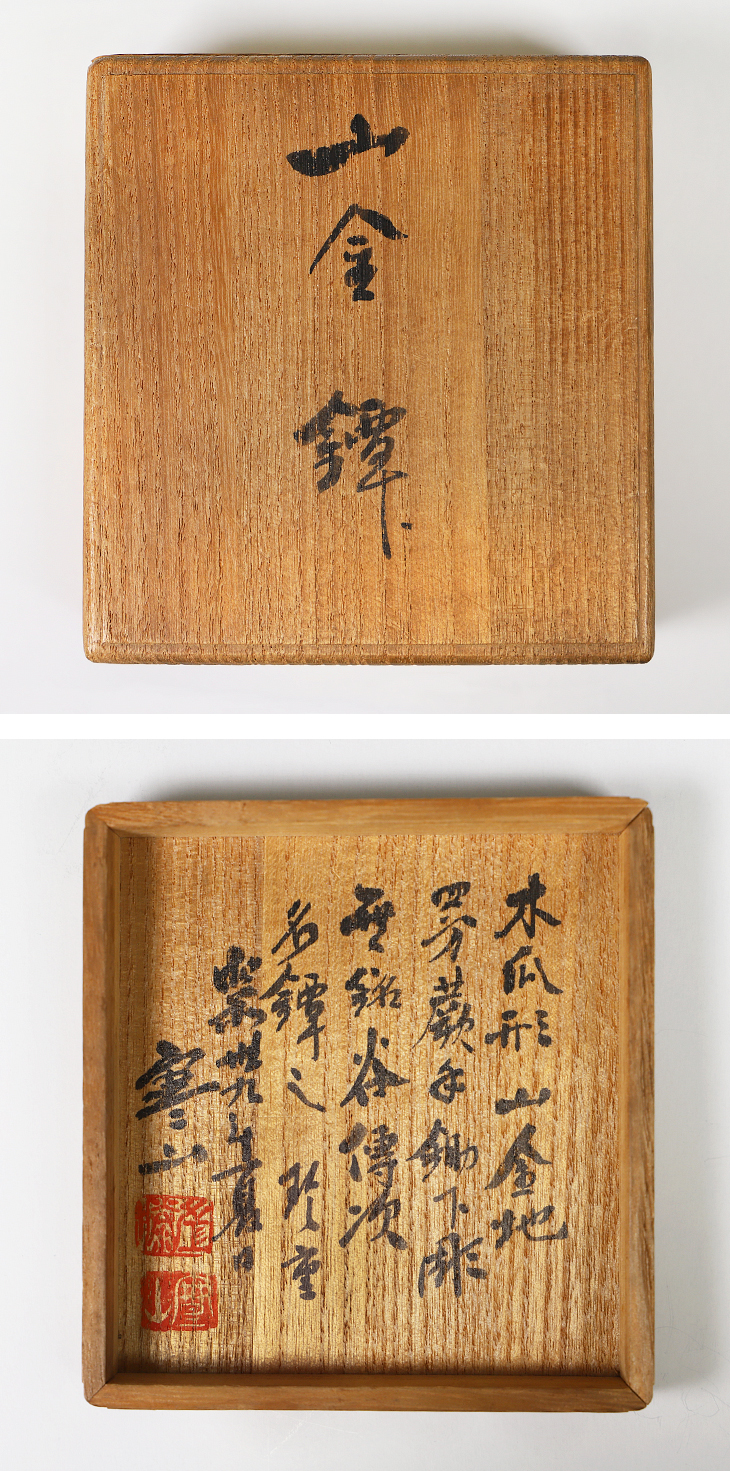 山金鐔
木瓜形山金地
四方蕨手鋤下彫
無銘 傳次
名鐔之 珍重
昭和卅九年夏日
寒山
寒山